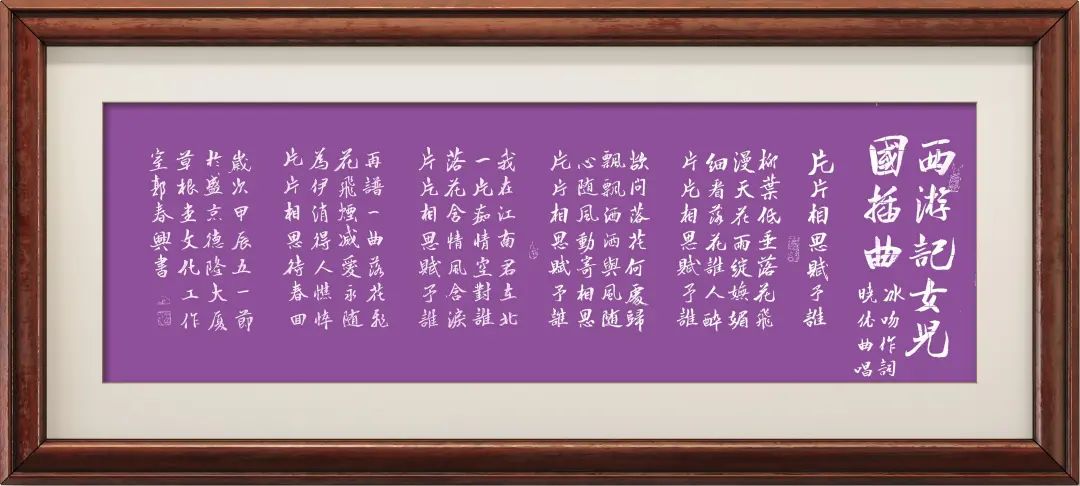 西游記女児
國插曲
冰吻作詞
曉优曲唱
片片相思賦予誰
柳葉低垂落花飛
漫天花雨綻嫵媚
細看落花誰人醉
片片相思賦予誰
欲問落花何處歸
飄飄洒洒與風随
心随風動寄相思
片片相思賦予誰
我在江南君在北
一片痴情空對誰
落花含情風含淚
片片相思賦予誰
再譜一曲落花飛
花飛煙滅愛永随
為伊消得人憔悴
片片相思待春回
歲次甲辰五一節
於盛京德隆大厦
草根圭文化工作
室郭春興書